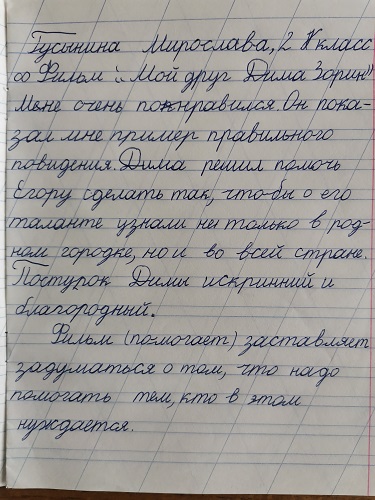 Гусынина Мирослава, 2 К класс
Фильм „Мой друг Дима Зорин"
Мене очень понравился. Он пока-
зал мне пример правильного
повидения. Дима решил помочь
Егору сделать так, что-бы о его
таланте узнали не только в род-
ном городке, но и во всей стране.
Поступок Димы искринний и
благородный.
Фильм (помогает) заставляет
задуматься о том, что надо
помогать тем, кто в этом
нуждается.